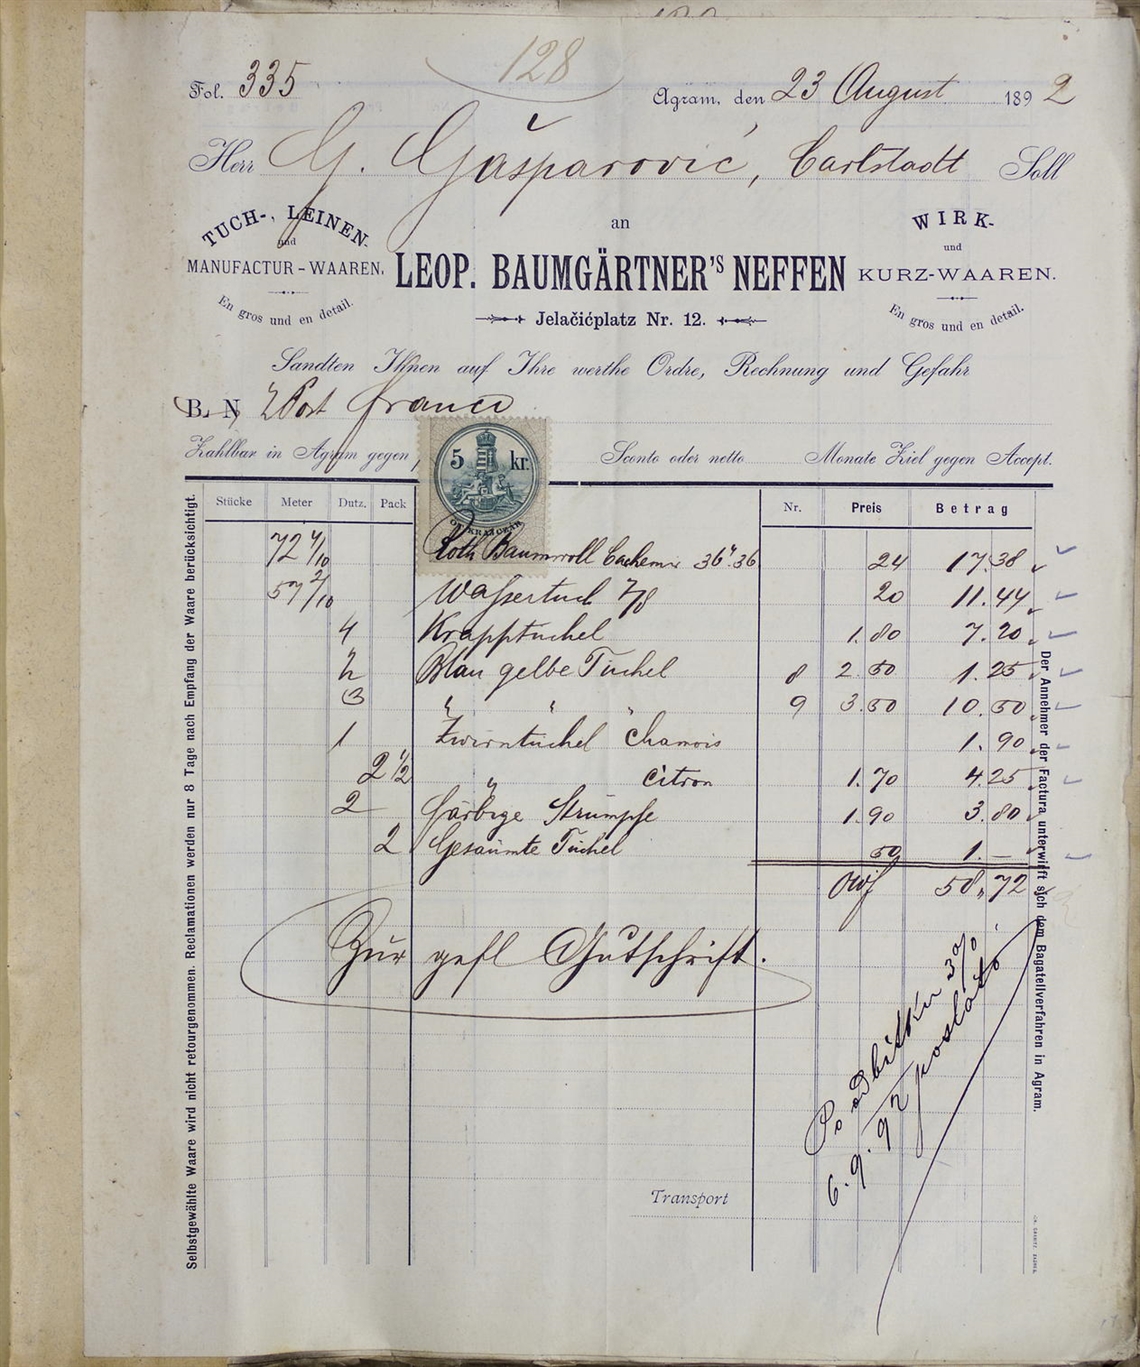 128
Fol. 335
Agram, den 23 August 1892
Herr G. Gašparović, Carlstadt Soll
an
TUCH-, LEINEN-
und
MANUFACTUR-WAAREN.
En gros und en detail.
LEOP. BAUMGÄRTNER'S NEFFEN
Jelačićplatz Nr. 12.
WIRK-
und
KURZ-WAAREN.
En gros und en detail.
Sandten Ihnen auf Ihre werthe Ordre, Rechnung und Gefahr
B. N Post franco
Zahlbar in Agram gegen Sconto oder netto Monate Ziel gegen Accept.
5 kr.
Stücke Meter Dutz. Pack Nr. Preis Betrag
72 4/10 Roth Baumwoll Cachemir 36". 36 24 17.38
57 2/10 Wassertuch 7/8 20 11.44
4 Krapptüchel 1.80 7.20
½ Blau gelbe Tüchel 8 2.50 1.25
3 " " " 9 3.50 10.50
1 Zwirntüchel Chamois 1.90
2 1/2 " Citron 1.70 4.25
2 färbige Strümpfe 1.90 3.80
2 Gesäumte Tüchel 50 1.—
öWf 58,72
Zur gefl Gutschrift.
Po odbitku 3%
6.9.92 poslato
Transport
Selbstgewählte Waare wird nicht retourgenommen. Reclamationen werden nur 8 Tage nach Empfang der Waare berücksichtigt.
Der Annehmer der Factura unterwirft sich dem Bagatellverfahren in Agram.